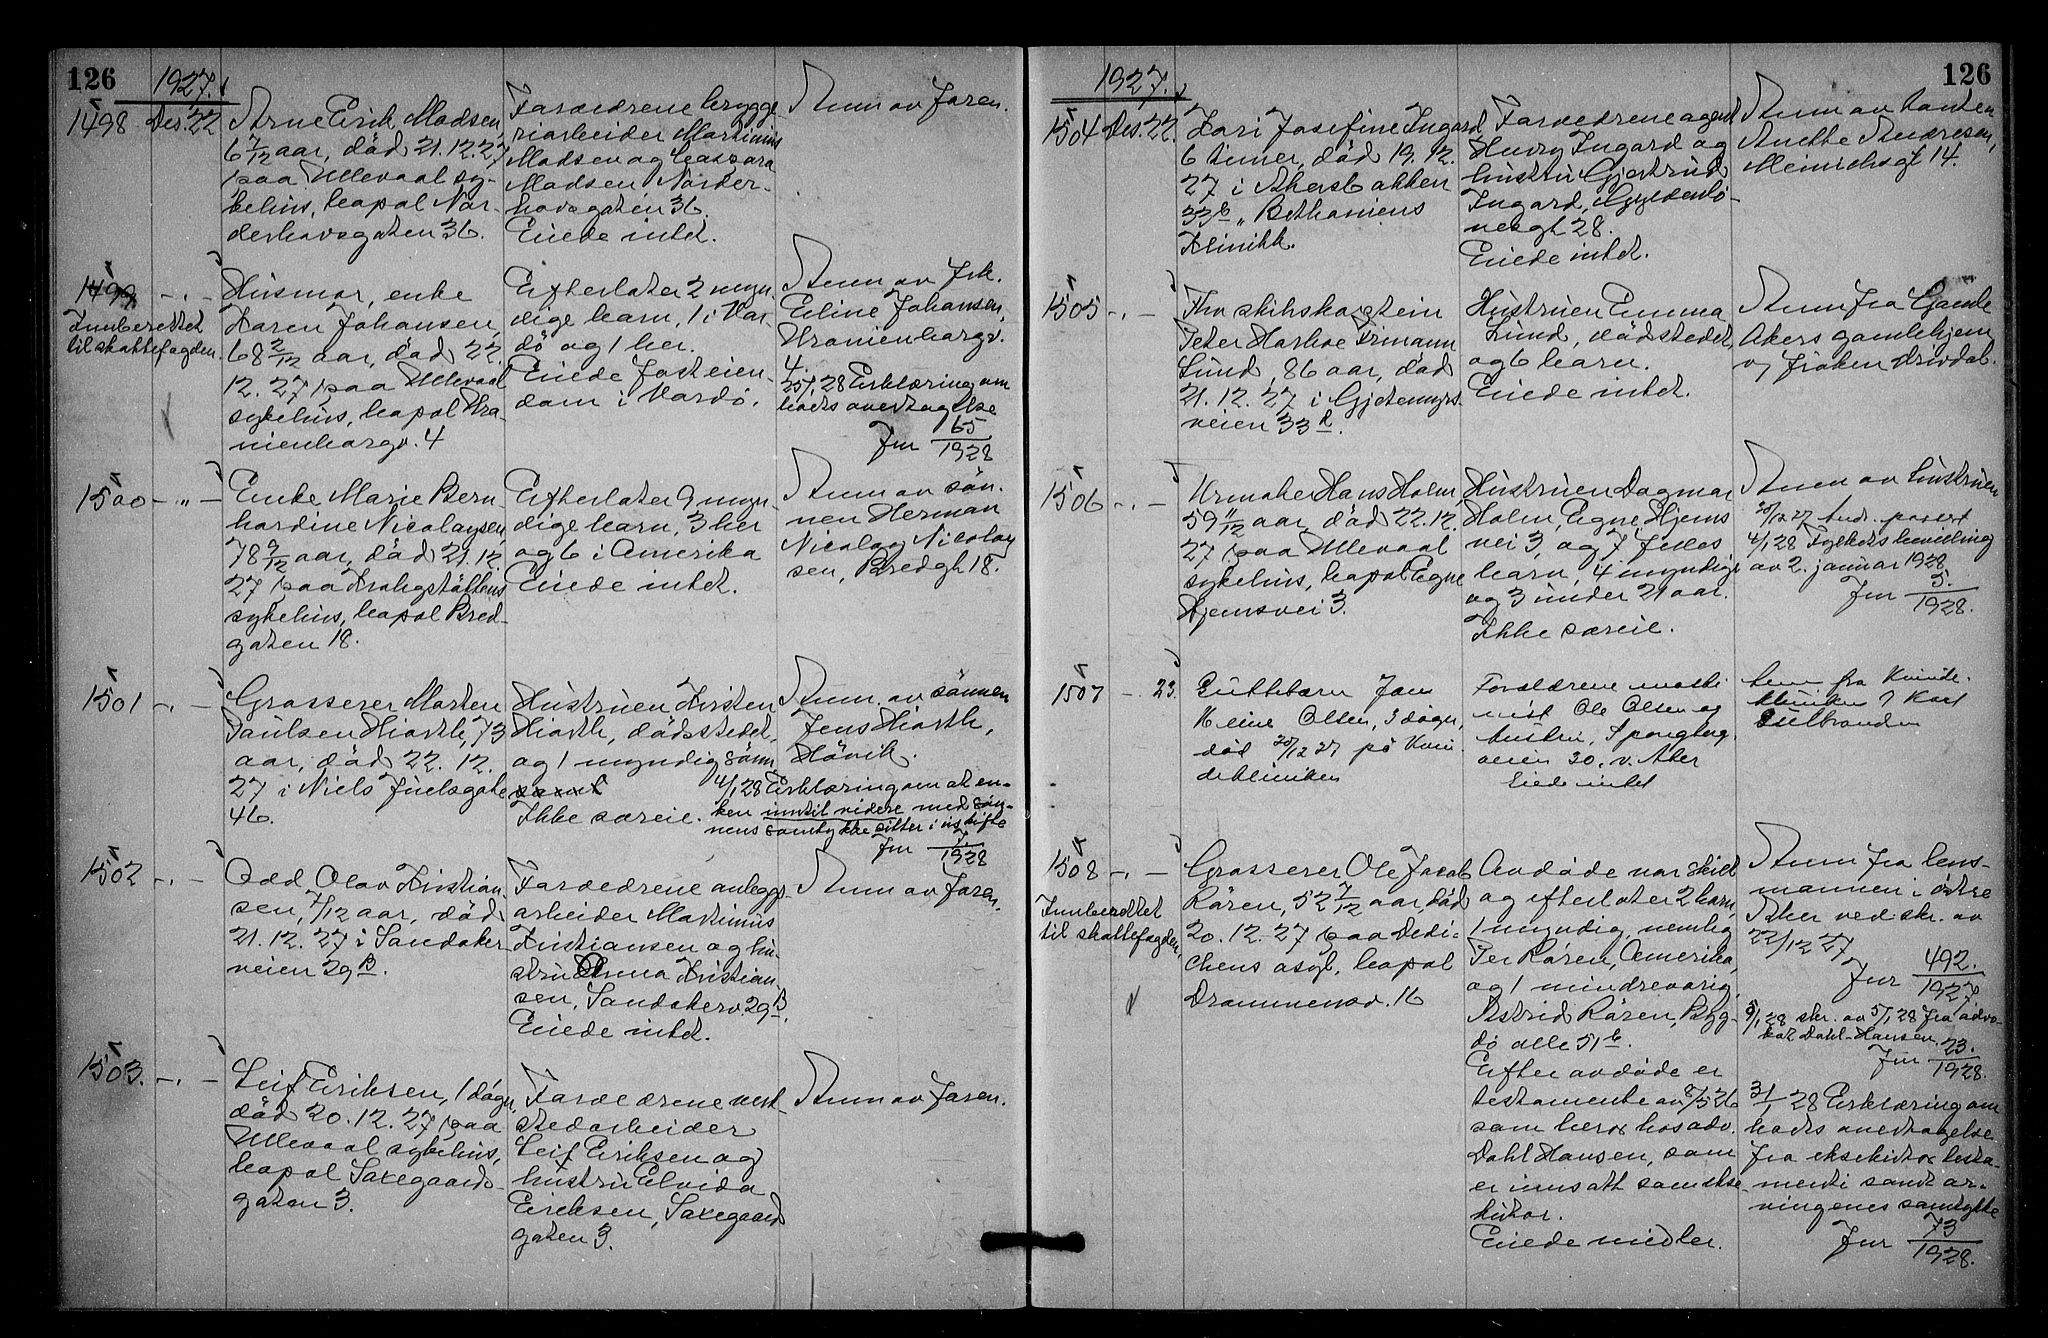 126
1927.
1498 Des. 22
Arne Erik Madsen
6 7/12 aar, död 21.12.27
paa Ullevaal sy-
kehus, bopal Nor-
derhovsgaten 36.
Foreldrene brygge-
riarbeider Martinius
Madsen og
Madsen, Norder-
hovsgaten 36.
Eiede intet.
Anm av faren.
1499 - " -
Innberettet
til skattefogden.
Husmor, enke
Karen Johansen,
68 2/12 aar, död 22.
12.27 paa Ullevaal
sykehus, bopal Ura-
nienborgv. 4
Efterlater 2 myn-
dige barn, 1 i Var-
dö og 1 her.
Eiede fast eien-
dom i Vardö.
Anm av frk.
Eline Johansen,
Uranienborgv.
4.
25/1 28 Erklæring om
boets overtagelse
Jnr 65/1928
1500 - " -
Enke Marie Bern-
hardine Nicolaysen,
78 9/12 aar, död 21.12.
27 paa Krohgstöttens
sykehus, bopal Bred-
gaten 18.
Efterlater 9 myn-
dige barn, 3 her
og 6 i Amerika
Eiede intet.
Anm av søn-
nen Herman
Nicolay Nicolay-
sen, Bredgt 18.
1501 - " -
Grosserer Morten
Paulsen Hiorth, 73
aar, död 22.12.
27 i Niels Juelsgate
46.
Hustruen Kirsten
Hiorth, dödsstedet,
og 1 myndig sönn
Ikke særeie.
Anm. av sönnen
Jens Hiorth,
Hövik.
4/1 28 Erklæring om at en-
ken inntil videre med søn-
nens samtykke sitter i uskifte
Jnr 7/1928
1502 - " -
Odd Olav Kristian-
sen, 7/12 aar, död
21.12.27 i Sandaker-
veien 29 B.
Foreldrene anleggs-
arbeider Martinius
Kristiansen og hu-
stru Anna Kristian-
sen, Sandakerv. 29 B.
Eiede intet.
Anm av faren.
1503. - " -
Leif Eriksen, 1 dögn,
död 20.12.27 paa
Ullevaal sykehus,
bopal Saxegaards-
gaten 3.
Foreldrene verk-
stedarbeider
Leif Eriksen og
hustru Elvida
Eriksen, Saxegaards-
gaten 3.
Anm av faren.
126
1927.
1504 Des. 22.
Kari Josefine Ingard,
6 timer, död 19.12.
27 i Akersbakken
33 b " Bethaniens
Klinikk.
Foreldrene agent
Henry Ingard og
hustru Gjertrud
Ingard, Gyldenlö-
vesgt 28.
Eiede intet.
Anm av tanten
Anette Andresen,
Heinrichsgt 14.
1505 - " -
Fhv skibskaptein
Peter Harboe Frimann
Lund 86 aar, död
21.12.27 i Gjetemyrs-
veien 33 d.
Hustruen Emma
Lund, dödstedet,
og 6 barn.
Eiede intet.
Anm fra Gamle
Akers gamlehjem
v/ fröken
1506 - " -
Urmaker Hans Holm
59 11/12 aar, död 22.12.
27 paa Ullevaal
sykehus, bopal Egne
Hjemsvei 3.
Hustruen Dagmar
Holm, Egne Hjems
vei 3, og 7 felles
barn, 4 myndige
og 3 under 21 aar.
Ikke særeie.
Anm av hustruen
4/1 28 Fylkets bevilling
av 2. januar 1928
Jnr 5./1928.
1507 - " 23.
Guttebarn Jan
Heine Olsen, 3 dögn,
död 20/12 27 på Kvin-
deklinikken
Forældrene maski-
nist Ole Olsen og
hustru, Spongberg-
veien 30, v. Aker
Eiede intet
Anm fra Kvinde-
klinikken v/ Karl
1508 - " -
Innberettet
til skattefogden.
Grosserer Ole Jacob
Rören, 52 7/12 aar, död
20.12.27 paa Dedi-
chens asyl, bopal
Drammensv. 16
Avdöde var skilt
og efterlater 2 barn,
1 myndig, nemlig
Per Rören, Amerika,
og 1 mindreaarig,
Astrid Rören, Byg-
dö alle 51 b.
Efter avdöde er
testamente av 8/5 26
som beror hos adv.
Dahl Hansen, som
er innsatt som ekse-
kutor.
Eiede midler.
Anm fra lens-
mannen i östre
Aker ved skr. av
22/12 27
Jnr 492./1927
9/1 28 skr. av 5/1 28 fra advo-
kat Dahl-Hansen.
Jnr 23./1928.
31/1 28 Erklæring om
boets overtagelse
fra eksekutor testa-
menti samt ar-
vingenes samtykke
Jnr 73/1928.